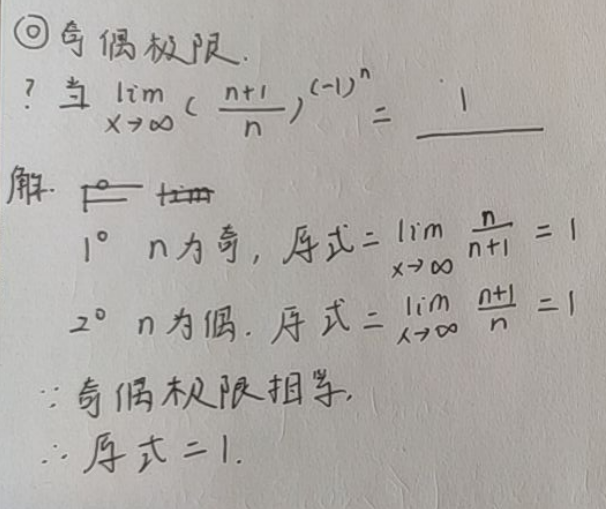 ◎奇偶极限.
? 当 lim x→∞ ( n+1 / n )^(-1)^n = 1
解.
1° n为奇, 原式 = lim x→∞ n / n+1 = 1
2° n为偶. 原式 = lim x→∞ n+1 / n = 1
∵奇偶极限相等.
∴原式=1.